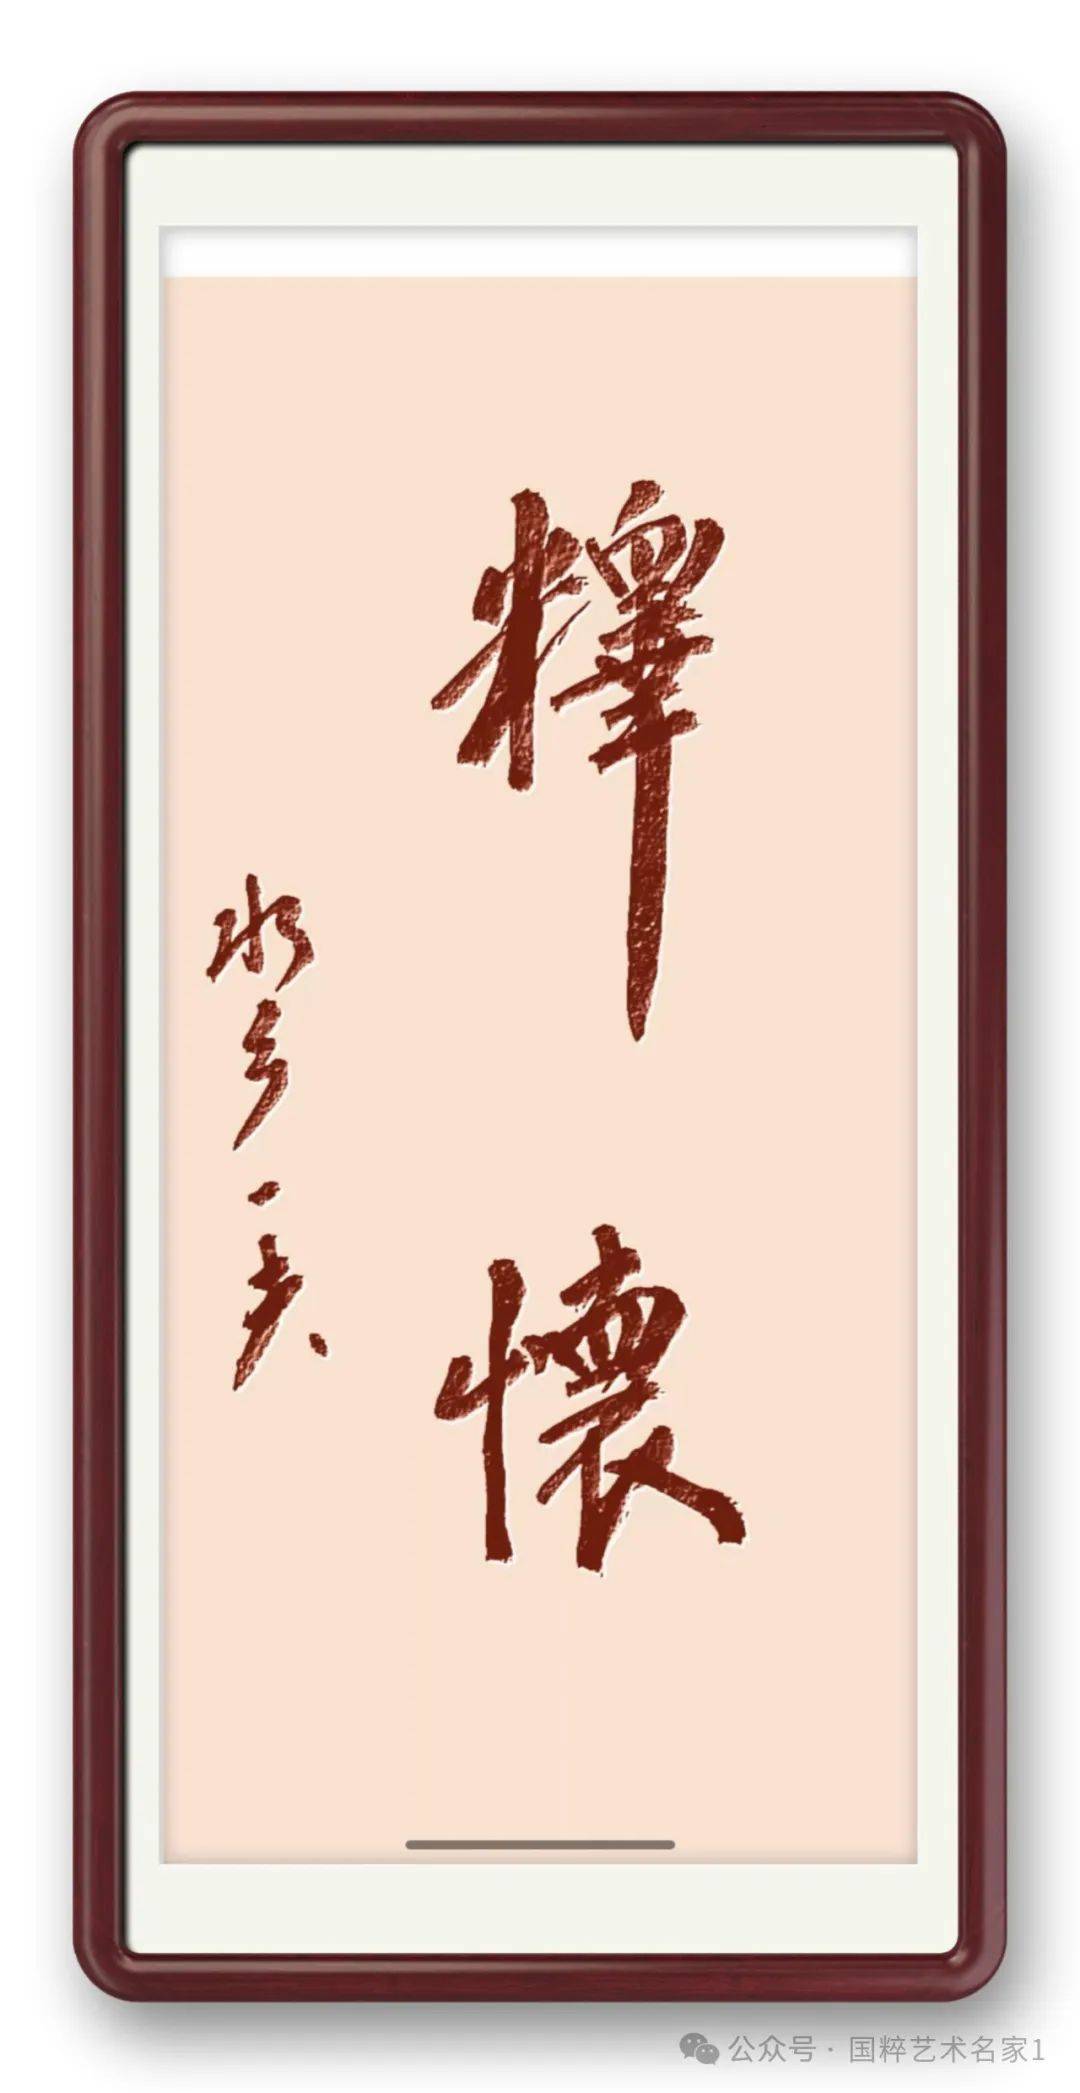 釋懷
水乡一夫
公众号 · 国粹艺术名家1